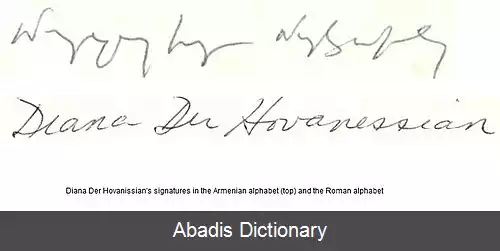 Diana Der Hovanessian
Diana Der Hovanissian's signatures in the Armenian alphabet (top) and the Roman alphabet
Abadis Dictionary